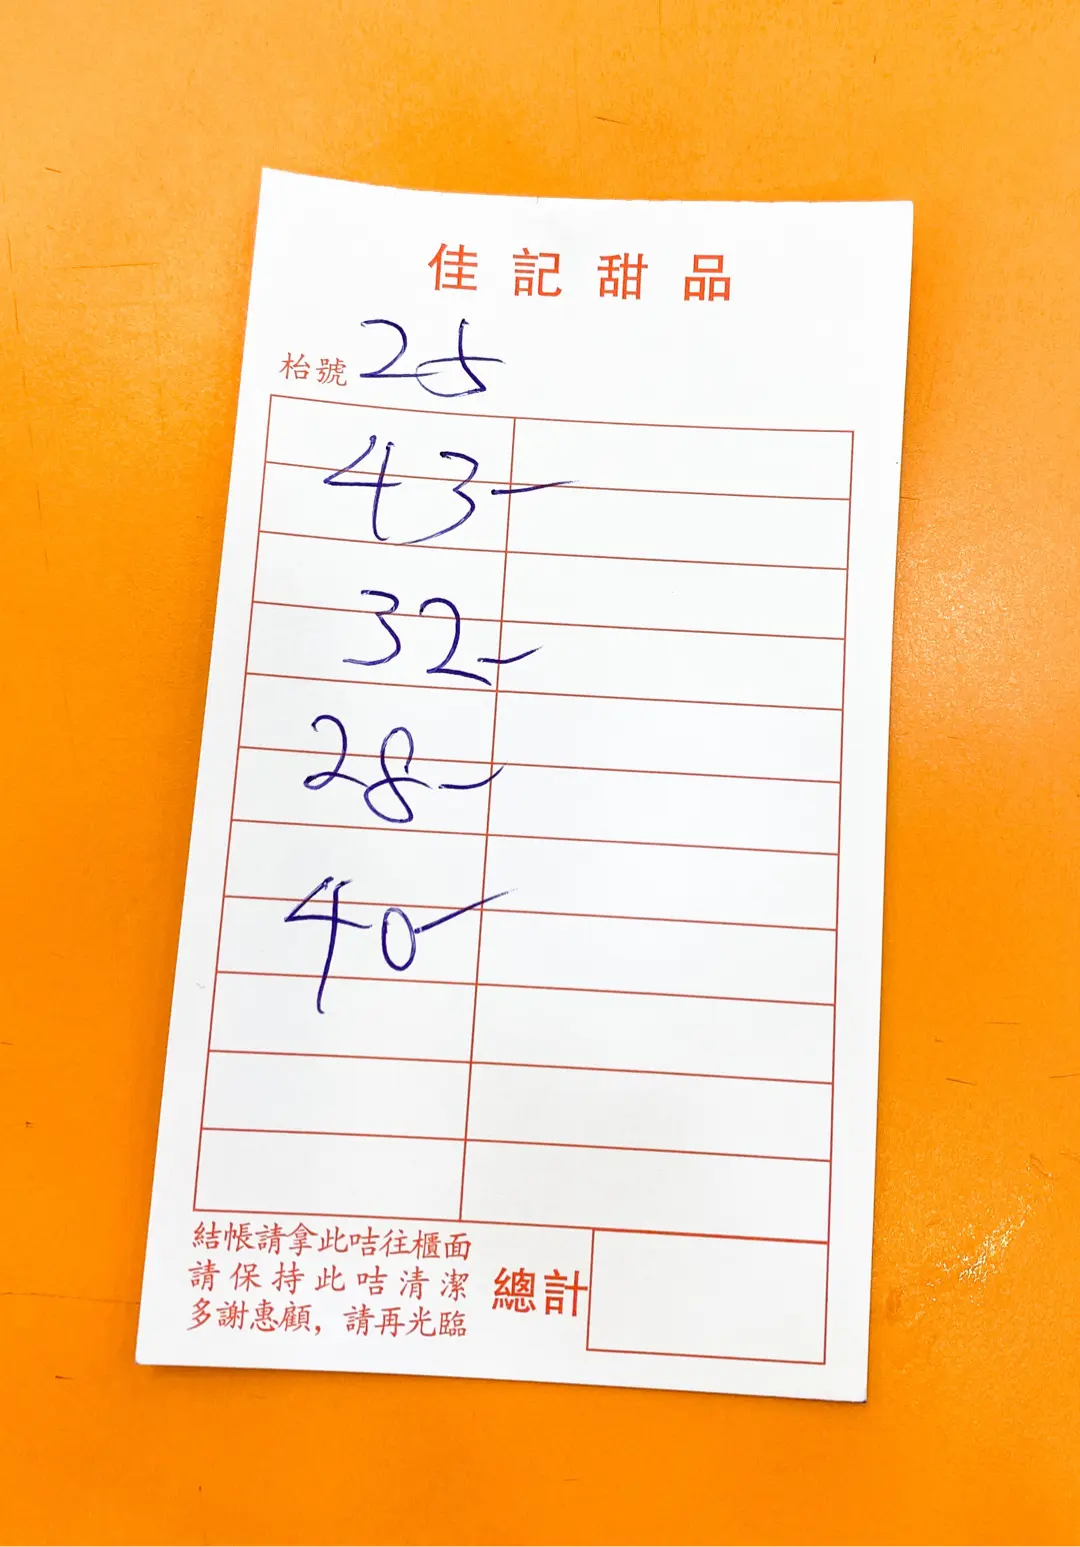 佳記甜品
枱號 25
43-
32-
28-
40-
結帳請拿此咭往櫃面
請保持此咭清潔
多謝惠顧，請再光臨
總計